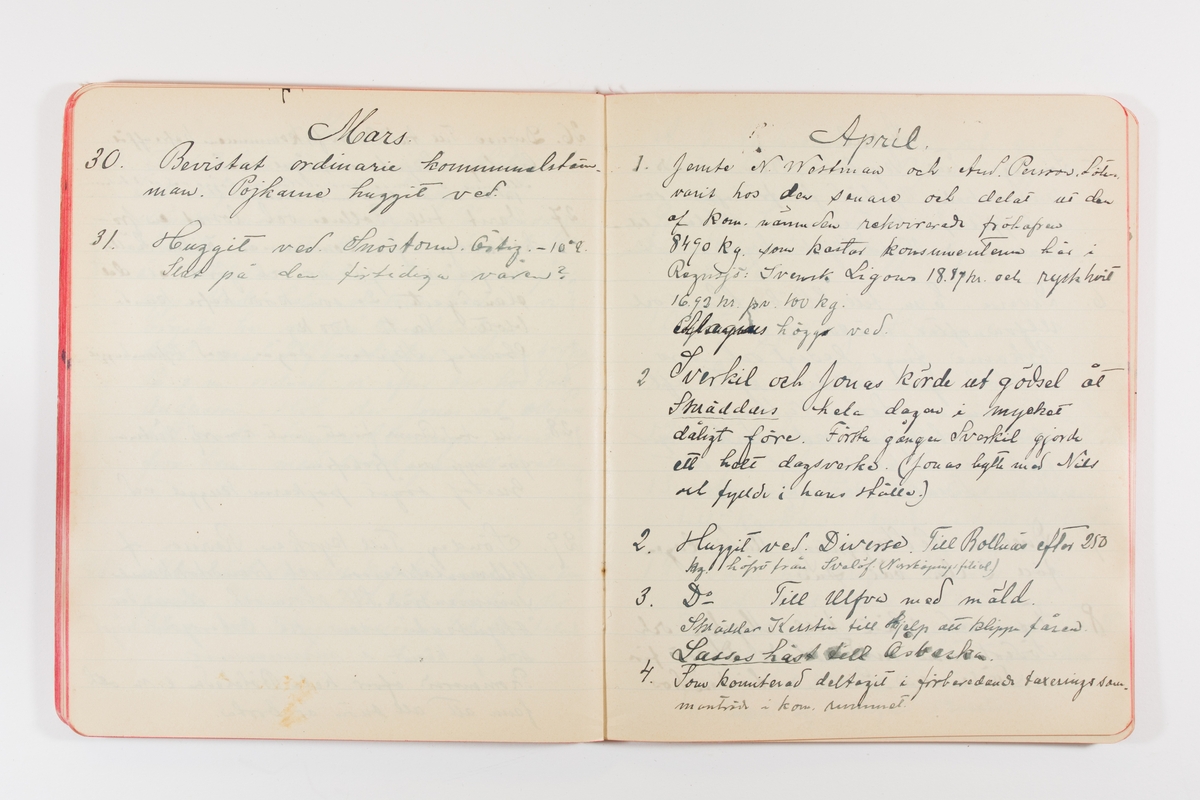 Mars.
30. Bevistat ordinarie kommunalstäm-
man. Pojkarne huggit ved.
31. Huggit ved. Snöstorm. Östig. -10°?
Slut på den förtidiga våren?
April.
1. Jemte N. Westman och And. Persson, Löten
varit hos den senare och delat ut den
af kom. nämnden rekvirerade fröhafren
8490 kg. som kostar konsumenterna här i
Rognsjö: Svensk Ligowo 18.87 kr. och rysk hvit
16.93 kr. pr. 100 kg.
höggs ved.
2 Sverkil och Jonas körde ut gödsel åt
Skräddars hela dagen i mycket
dåligt före. Första gången Sverkil gjorde
ett helt dagsverke. (Jonas bytte med Nils
och fyllde i hans ställe.)
2. Huggit ved. Diverse. Till Bollnäs efter 250
kg. höfrö från Svalöf. (Norrköpingsfilial.)
3. Do Till Ulfva med mäld.
Skräddar Kerstin till hjelp att klippa fåren.
Lasses häst till Östeska.
4. Som komiterad deltagit i förberedande taxeringssam-
manträde i kom. rummet.